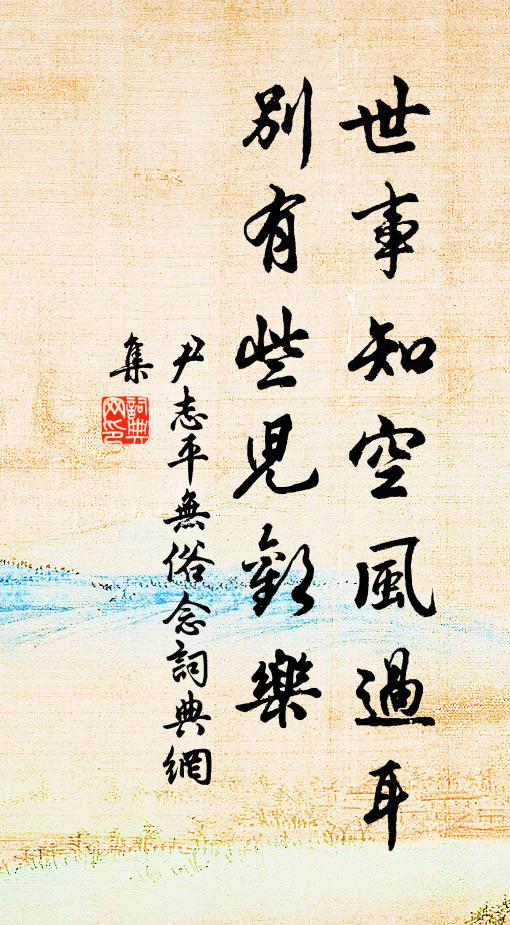 世事知空風過耳
別有些兒歡樂
尹志平無俗念詞典網
集
詞典網印